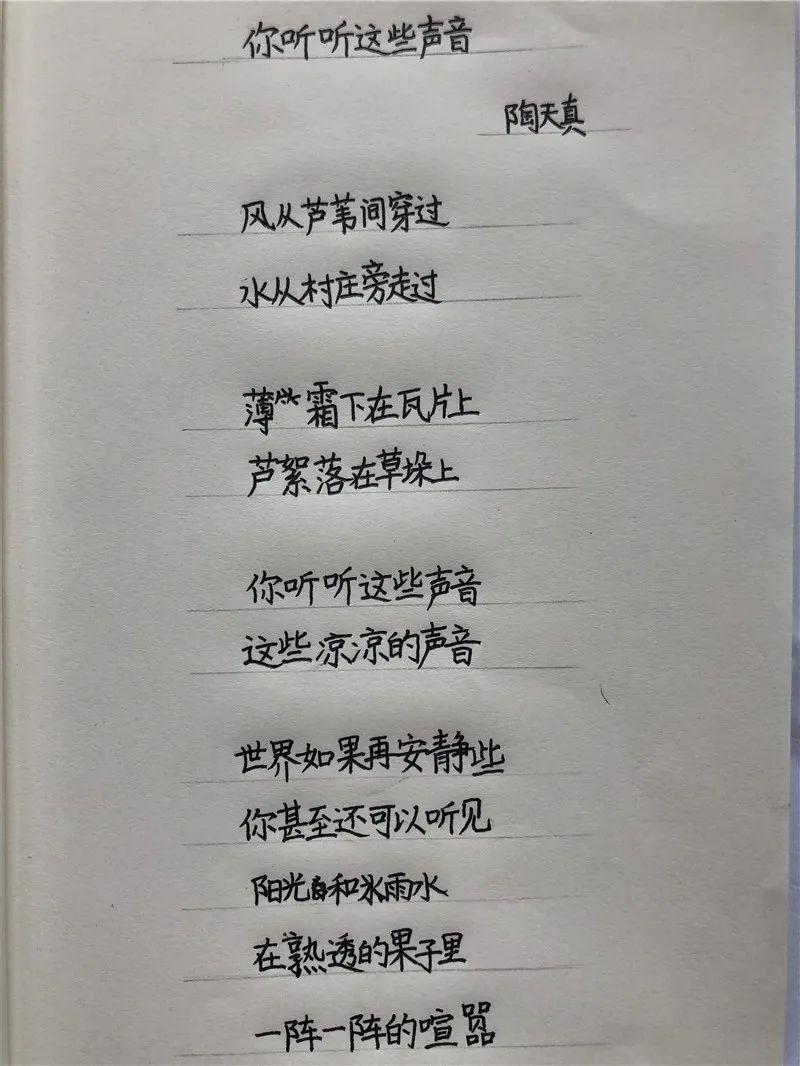 你听听这些声音
陶天真
风从芦苇间穿过
水从村庄旁走过
薄霜下在瓦片上
芦絮落在草垛上
你听听这些声音
这些凉凉的声音
世界如果再安静些
你甚至还可以听见
阳光和雨水
在熟透的果子里
一阵一阵的喧嚣